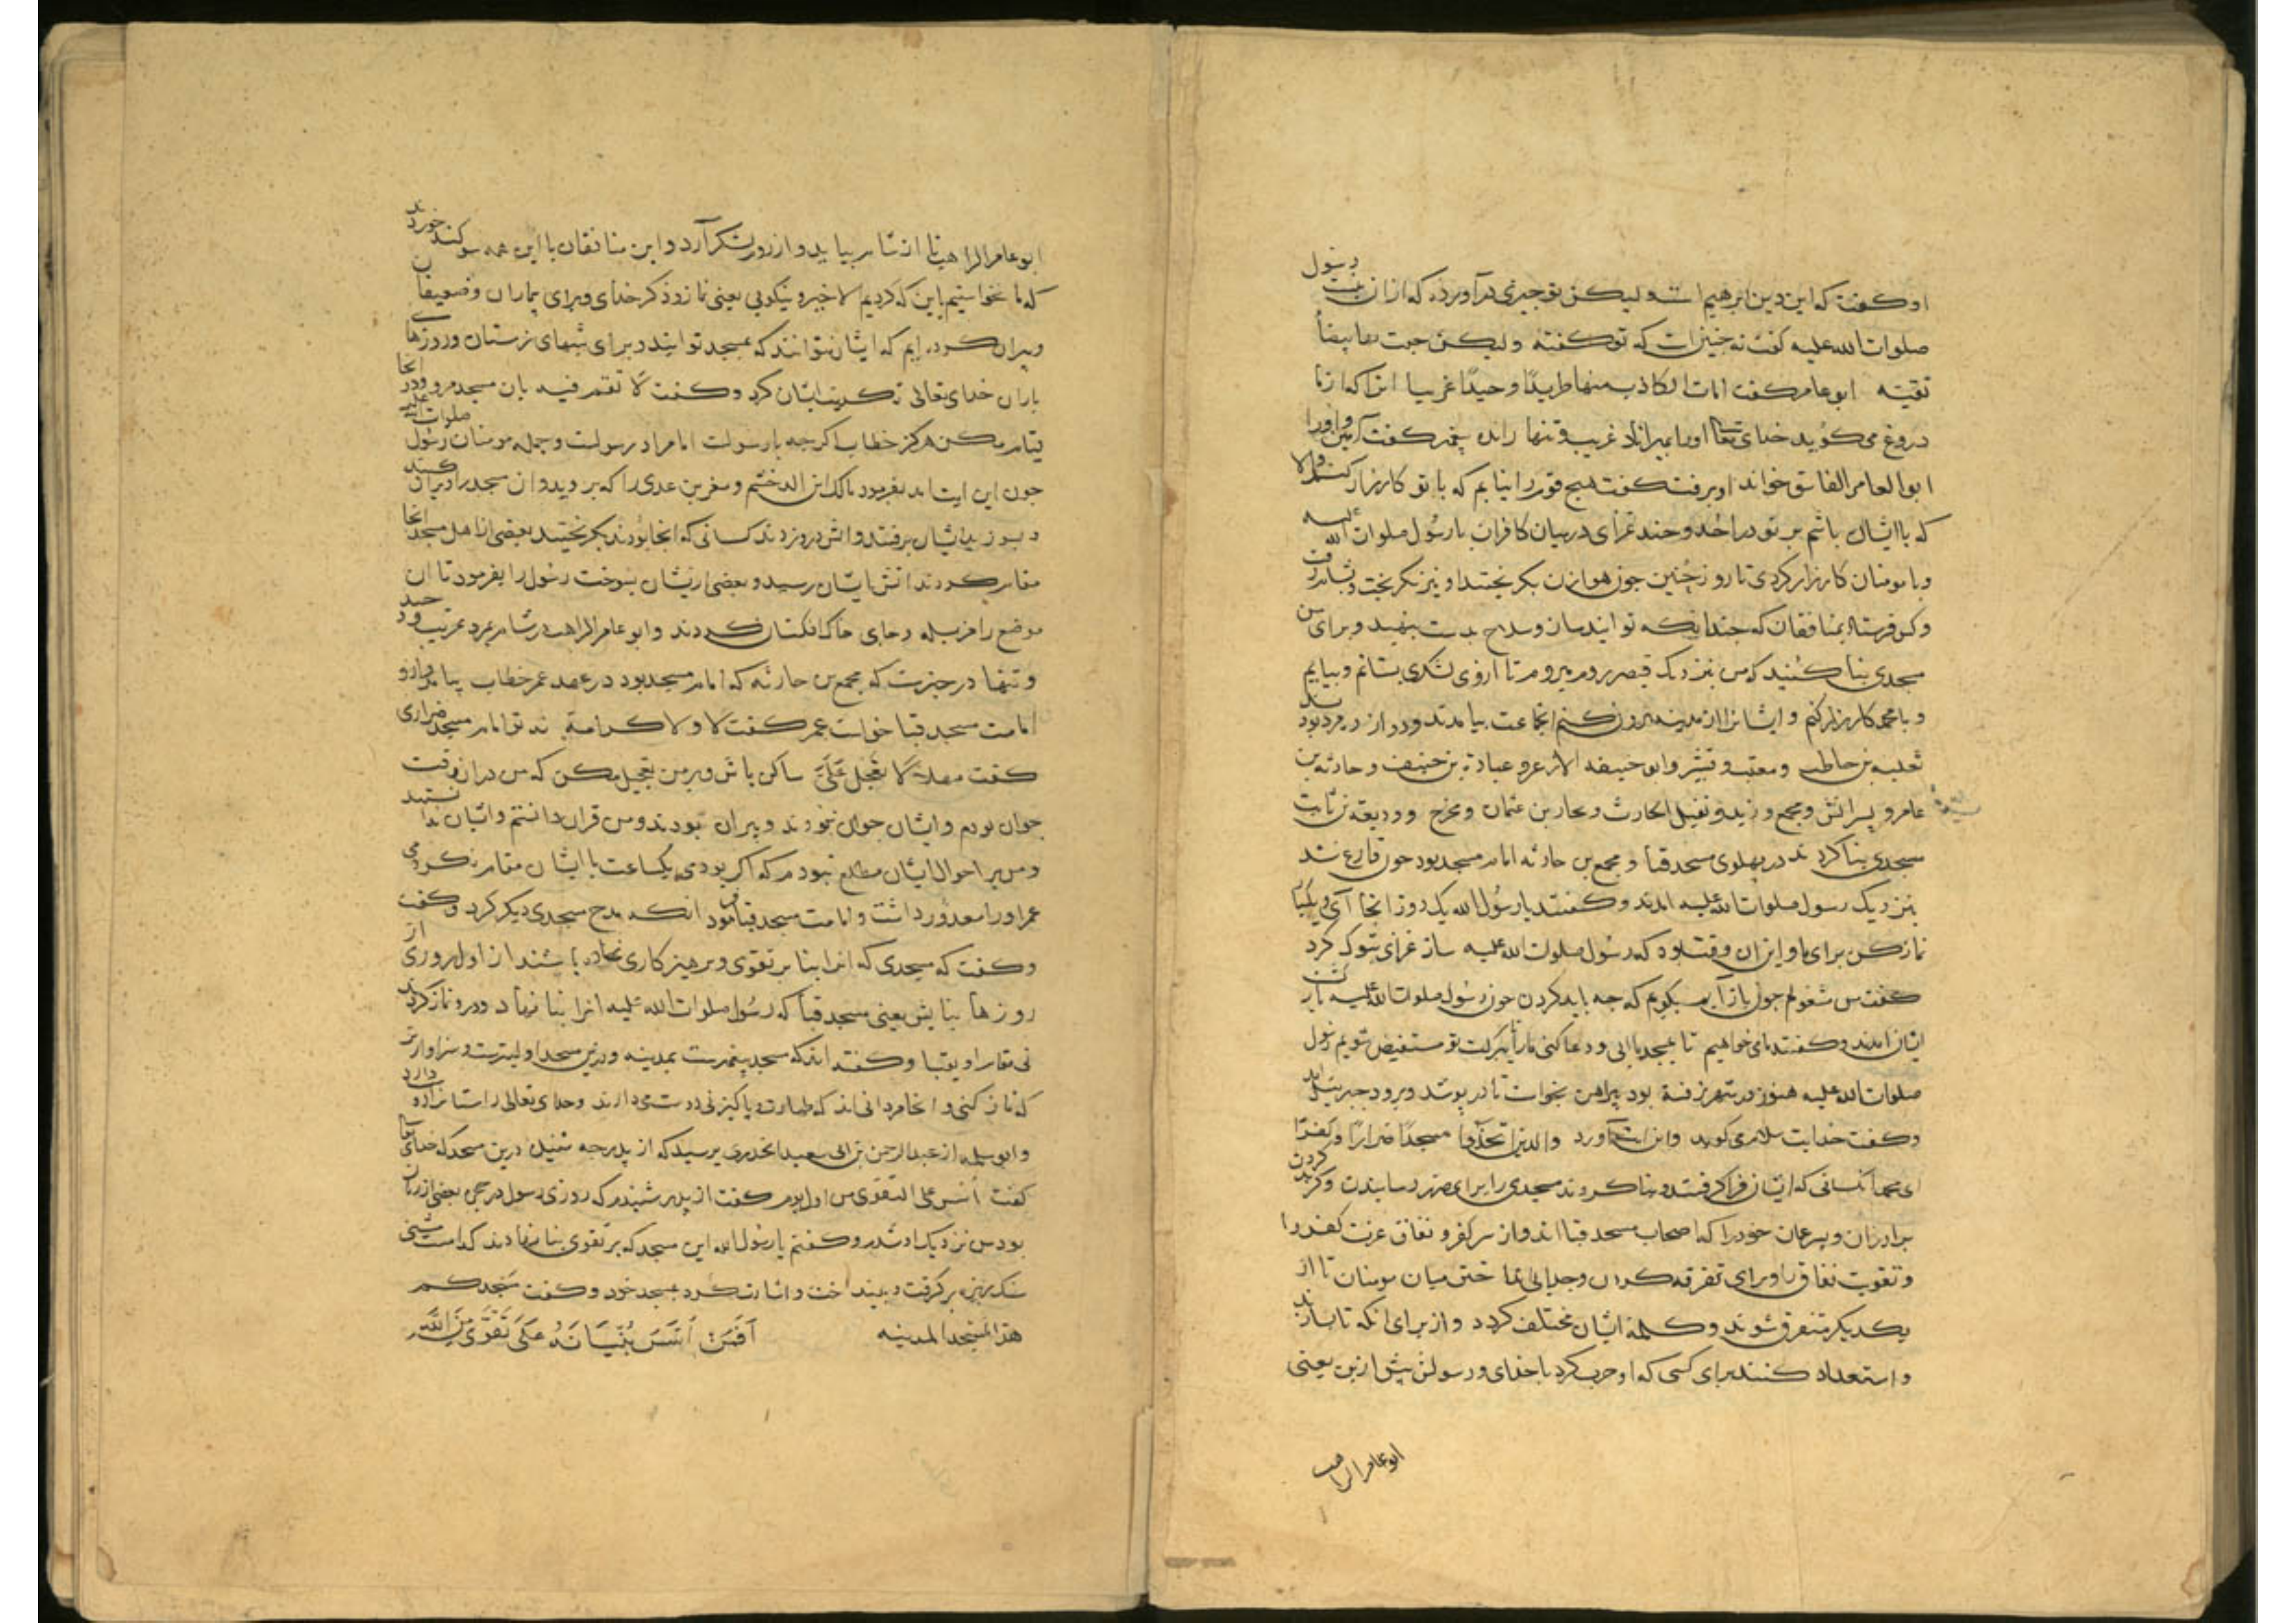 او گفت که این دین ابرهیم است ولیکن تو چیزی در آورده که از ان نیست رسول
صلوات الله علیه گفت نه چنین است که تو گفتۀ ولیکن جئت بها بیضاً
نقیة ابو عامر گفت امات الکاذب منها طریدًا وحیدًا غریبا انرا که از ما
دروغ می گوید خدای تعا او را بمیراناد غریب و تنها رانده پیغمبر گفت آمین و او را
ابو العامر الفاسق خواند او برفت گفت هیچ قوم را نیابم که با تو کارزار کنند والا
که با ایشان باشم بر تو در احد و چند غزای در میان کافران با رسول صلوات الله علیه
و با مومنان کارزار کردی تا روز حُنین چون هوازن بکریختند او نیز بکریخت و بشام رفت
و کس فرستاد بمنافقان که چندانکه توانید ساز و سلاح بدست بنهید و برای من
مسجدی بنا کنید که من بنزدیک قیصر روم میروم تا از وی لشکری بستانم و بیایم
و با محمد کارزار کنم و ایشانرا از مدینه بیرون کنم انجماعت بیامدند و دوازده مرد بودند
ثعلبه بن حاطب و معتب و قشیر و ابو حبیفه الازعر و عبادة بن حنیف و حارثه بن
عامر و پسرانش مجمع و زید و نفیل الحارث و بحار بن عثمان و بحزج و ودیعه بن ثابت
مسجدی بنا کردند در پهلوی مسجد قبا و مجمع بن حارثه امام مسجد بود چون فارغ شدند
بنزدیک رسول صلوات الله علیه امدند و گفتند یا رسُول الله یک روز انجا آی و یکبار
نماز کن برای ما و این ان وقت بود که رسُول صلوات الله علیه ساز غزای تبوک کرد
گفت من مشغولم چون باز آیم بگویم که چه باید کردن چون رسُول صلوات الله علیه باز گشت
ایشان امدند و گفتند ما می خواهیم تا بمسجد ما ایی و دعا کنی ما را تا ببرکت تو مستفیض شویم رسول
صلوات الله علیه هنوز در شهر نرفته بود پیراهن بخواست تا در پوشد و برود جبرئیل امد
و گفت خدایت سلام می گوید و این ایت آورد والذین اتخذوا مسجدًا ضرارًا و کفرًا
ای محمد آنکسانی که ایشان فرا گرفتند و بنا کردند مسجدی را برای مضرت رسانیدن و گزند کردن
برادران و پسرعمان خود را که اصحاب مسجد قبا اند و از سر کفر و نفاق عزت کفر را
و تقویت نفاق را و برای تفرقه کردن و جدایی انداختن میان مومنان تا از
یکدیگر متفرق شوند و کلمۀ ایشان مختلف گردد و از برای انکه تا بسازند
و استعداد کنند برای کسی که او حرب کرد با خدای و رسولش پیش از این یعنی
ابو عامر الراهب
ابو عامر الراهب تا از شام بیاید و از روم لشکر آرد و این منافقان با این همه سوگند خوردند
که ما نخواستیم باین که کردیم الا خیر و نیکویی یعنی نماز و ذکر خدای و برای بیماران و ضعیفان
و پیران کرده ایم که ایشان نتوانند که بمسجد تو ایند و برای شبهای زمستان و روزهای
باران خدای تعالی تکذیب ایشان کرد و گفت لا تقم فیه بان مسجد مرو و در انجا
قیام مکن هرگز خطاب اگر چه با رسولست اما مراد رسولست و جمله مومنان رسُول صلوات الله علیه
چون این ایت امد بفرمود مالک ابن الدخشم و معن بن عدی را که بروید و ان مسجد را ویران کنید
و بسوزید ایشان برفتند و اتش در و زدند کسانی که انجا بودند بکریختند بعضی از اهل مسجد انجا
مقام کردند اتش بایشان رسید و بعضی از ایشان بسوخت رسُول را بفرمود تا ان
موضع را مزبله و جای خاک انکنان کردند و ابو عامر الراهب در شام بمرد غریب و وحید
و تنها در خبرست که مجمع بن حارثه که امام مسجد بود در عهد عمر خطاب بیامد و ازو
امامت مسجد قبا خواست عمر گفت لا و لا کرامة نه تو امام مسجد ضراری
گفت مهلا لا تعجل عَلَیَّ ساکن باش و بر من تعجیل مکن که من در ان وقت
جوان بودم و ایشان جوان نبودند و پیران بودند و من قران دانستم و ایشان ندانستند
و من بر احوال ایشان مطلع نبودم که اگر بودمی یکساعت با ایشان مقام نکردمی
عمر او را معذور داشت و امامت مسجد قبا فرمود انکه مدح مسجدی دیگر کرد و گفت
و گفت که مسجدی که انرا بنا بر تقوی و پرهیزکاری نهاده باشند از اول روزی از
روزها بنایش یعنی مسجد قبا که رسُول صلوات الله علیه انرا بنا نهاد و درو نماز کردند
فی مقام او بقبا و گفته اند که مسجد پیغمبرست بمدینه و درین مسجد اولیترست و سزاوارتر
که نماز کنی و انجا مردانی اند که طهارت و پاکیزگی دوست می دارند و خدای تعالی
و ابو سلمه از عبد الرحمن بن ابی سعید الخدری پرسید که از پدر چه شنیدۀ درین مسجد که خدای تعا
گفت اُسِّسَ علی التقوی من اول یوم گفت از پدر شنیدم که روزی رسول در حجرۀ بعضی از زنان
بود من نزدیک او شدم و گفتم یا رسُول الله این مسجد که بر تقوی بنا نهادند کدامست مشتی
سنک ریزه بر گرفت و بینداخت و اشارت کرد بمسجد خود و گفت مسجدکم
هذا المسجد المدینه اَفَمَنْ اَسَّسَ بُنْیَانَهُ عَلَی تَقْوَی مِنَ اللَّهِ